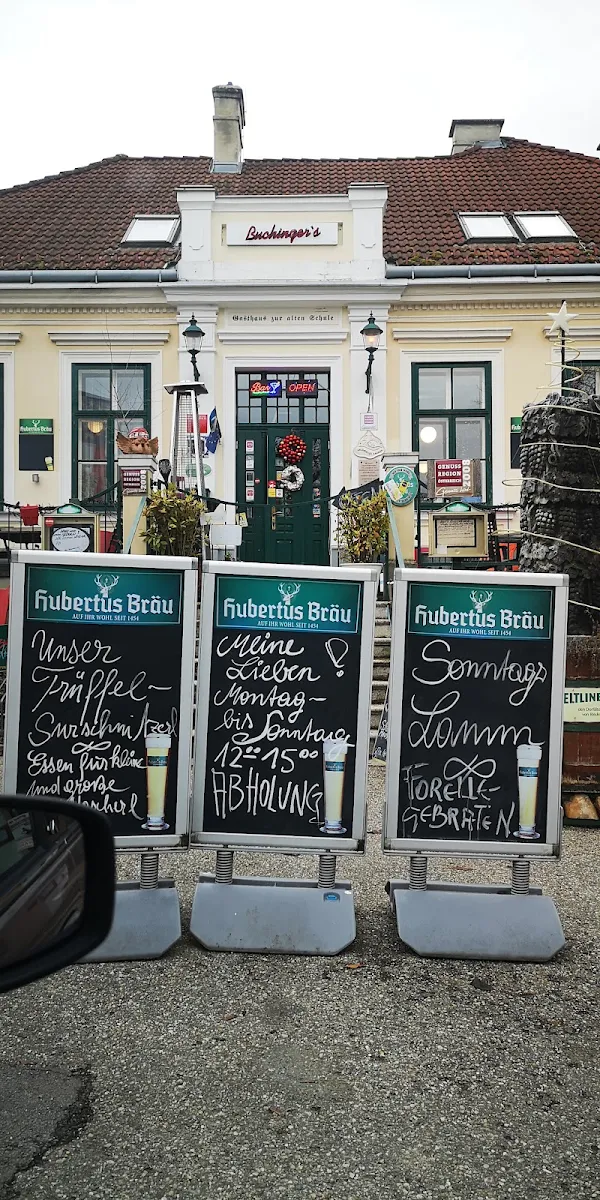 Buchinger's
Gasthaus zur alten Schule
Bar
OPEN
GENUSS
REGION
ÖSTERREICH
2008
Hubertus Bräu
AUF IHR WOHL SEIT 1454
Unser
Trüffel-
Surschnitzerl
Essen für kleine
und große
Hubertus Bräu
AUF IHR WOHL SEIT 1454
Meine !
Lieben
Montag-
bis Sonntag
1200 1500
ABHOLUNG
Hubertus Bräu
AUF IHR WOHL SEIT 1454
Sonntags
Lamm
FORELLE-
GEBRATEN